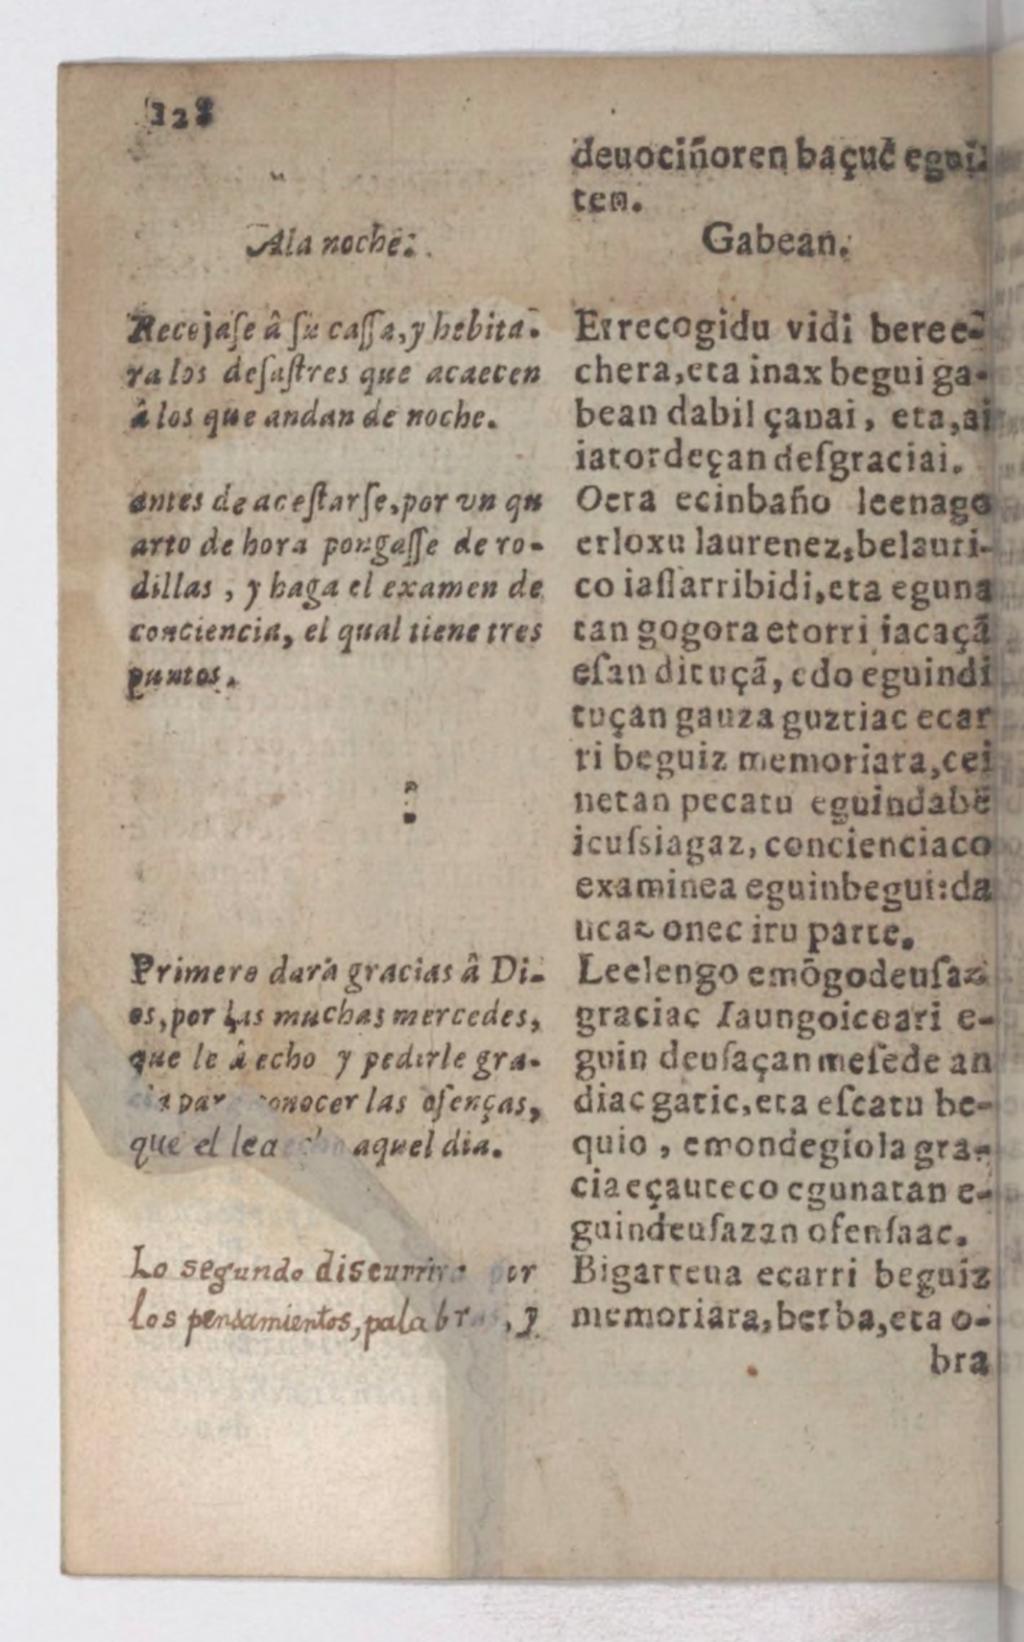 128
Ala noche.
Recojaſe â ſu caſſa, y hebita-
ra los deſaſtres que acaecen
â los que andan de noche.
antes de aceſtarſe, por vn qu
arto de hora pongaſſe de ro-
dillas, y haga el examen de
conciencia, el qual tiene tres
puntos.
Primero darà gracias â Di-
os, por las muchas mercedes,
que le â echo y pedirle gra-
par conocer las ofenças,
que el le a aquel dia.
Lo segundo discurrir por
los pensamientos, palabras, y
deuociñoren baçuẽ eguil
ten.
Gabean.
Errecogidu vidi beree-
chera, eta inax begui ga-
bean dabil çanai, eta, ai
iatordeçan deſgraciai.
Oera ecinbaño leenago
erloxu laurenez, belauri-
co iaſſarribidi, eta eguna
tan gogora etorri iacaçã
eſan dituçã, edo eguindi
tuçan gauza guztiac ecar
ri beguiz memoriara, cei
netan pecatu eguindabẽ
icuſsiagaz, concienciaco
examinea eguinbegui: da
ucaz onec iru parte.
Leelengo emõgodeuſaz
graciac Iaungoicoari e-
guin deuſaçan meſede an
diac gatic, eta eſcatu be-
quio, emondegiola gra-
cia eçauteco egunatan e-
guindeuſazan ofenſaac.
Bigarreua ecarri beguiz
memoriara, berba, eta o-
bra